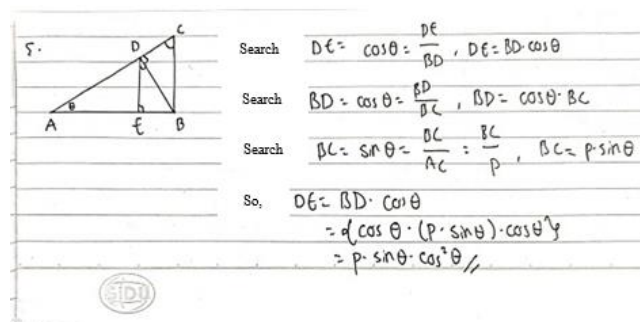 5.
C
D
θ
A E B
Search DE = cos θ = DE/BD , DE = BD · cos θ
Search BD = cos θ = BD/BC , BD = cos θ · BC
Search BC = sin θ = BC/AC = BC/P , BC = p · sin θ
So, DE = BD · cos θ
= { cos θ · (p · sin θ) · cos θ }
= p · sin θ · cos² θ //
SIDU